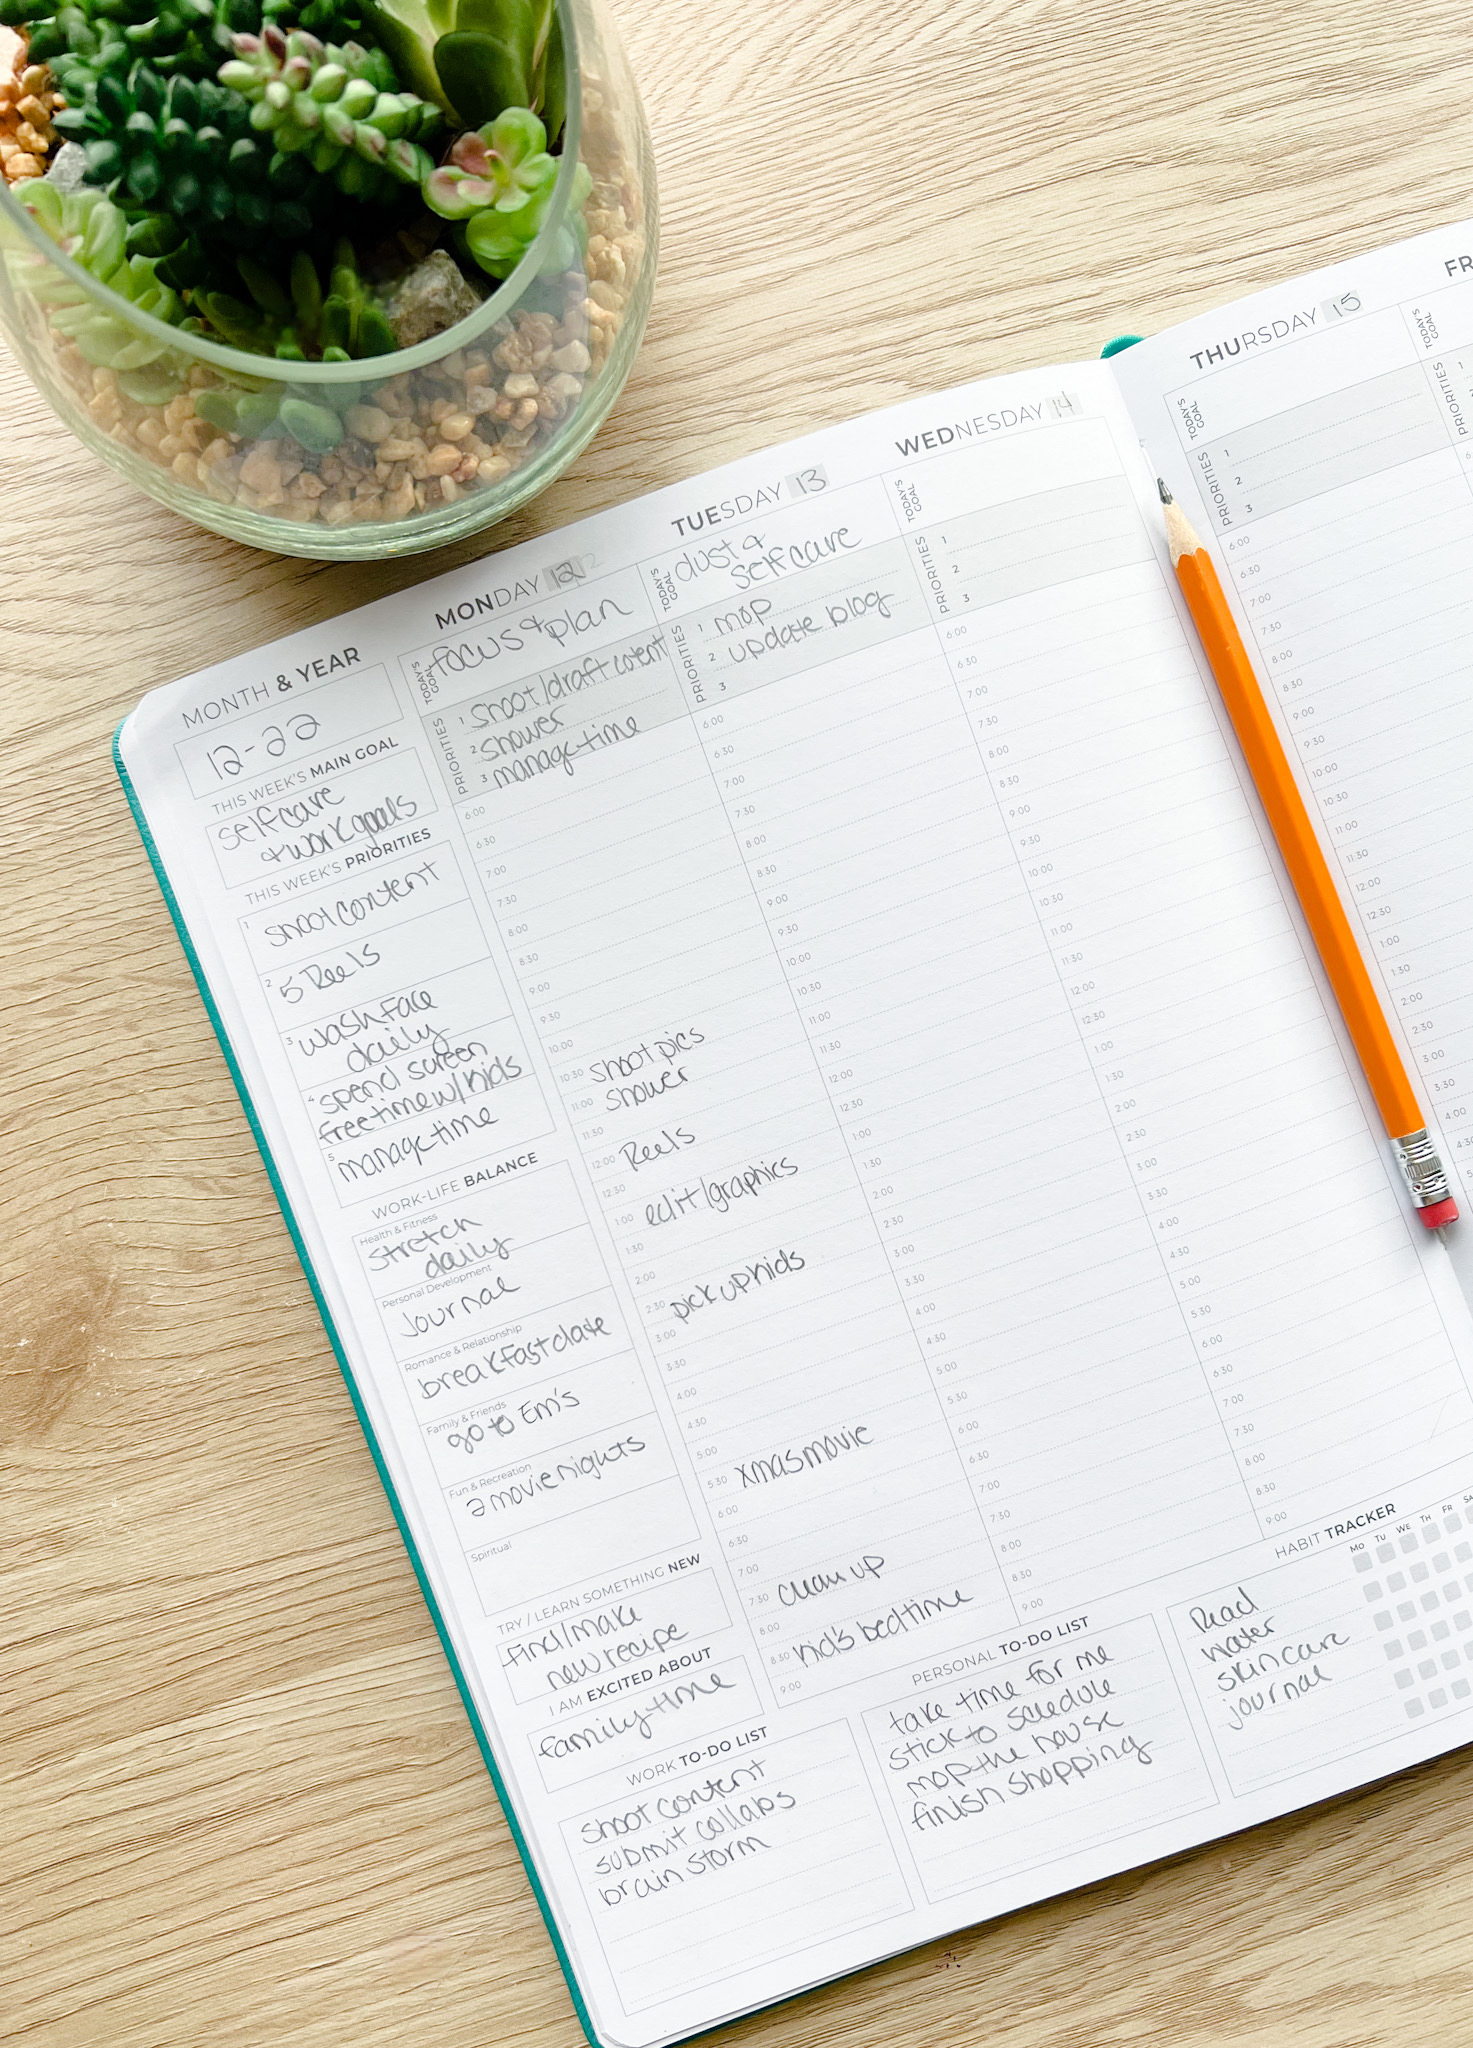 MONTH & YEAR
12-22
THIS WEEK'S MAIN GOAL
selfcare
& work goals
THIS WEEK'S PRIORITIES
1 shoot content
2 5 Reels
3 wash face
daily
4 spend screen
free time w/ kids
5 manage time
WORK-LIFE BALANCE
Health & Fitness
stretch
daily
Personal Development
Journal
Romance & Relationship
breakfast date
Family & Friends
go to Em's
Fun & Recreation
2 movie nights
Spiritual
TRY / LEARN SOMETHING NEW
find/make
new recipe
I AM EXCITED ABOUT
family time
MONDAY 12
TODAY'S GOAL
focus & plan
PRIORITIES
1 shoot/draft cotent
2 shower
3 manage time
6:00
6:30
7:00
7:30
8:00
8:30
9:00
9:30
10:00
10:30 shoot pics
11:00 shower
11:30
12:00 Reels
12:30
1:00 edit/graphics
1:30
2:00
2:30 pick up kids
3:00
3:30
4:00
4:30
5:00
5:30 xmas movie
6:00
6:30
7:00
7:30 clean up
8:00
8:30 kid's bedtime
9:00
TUESDAY 13
TODAY'S GOAL
dust &
selfcare
PRIORITIES
1 mop
2 update blog
3
6:00
6:30
7:00
7:30
8:00
8:30
9:00
9:30
10:00
10:30
11:00
11:30
12:00
12:30
1:00
1:30
2:00
2:30
3:00
3:30
4:00
4:30
5:00
5:30
6:00
6:30
7:00
7:30
8:00
8:30
9:00
WEDNESDAY 14
TODAY'S GOAL
PRIORITIES
1
2
3
6:00
6:30
7:00
7:30
8:00
8:30
9:00
9:30
10:00
10:30
11:00
11:30
12:00
12:30
1:00
1:30
2:00
2:30
3:00
3:30
4:00
4:30
5:00
5:30
6:00
6:30
7:00
7:30
8:00
8:30
9:00
THURSDAY 15
TODAY'S GOAL
PRIORITIES
1
2
3
6:00
6:30
7:00
7:30
8:00
8:30
9:00
9:30
10:00
10:30
11:00
11:30
12:00
12:30
1:00
1:30
2:00
2:30
3:00
3:30
4:00
4:30
FR
TODAY'S GOAL
PRIORITIES
1
WORK TO-DO LIST
shoot content
submit collabs
brain storm
PERSONAL TO-DO LIST
take time for me
stick to scedule
mop the house
finish shopping
HABIT TRACKER
MO TU WE TH FR SA
Read
water
skincare
journal